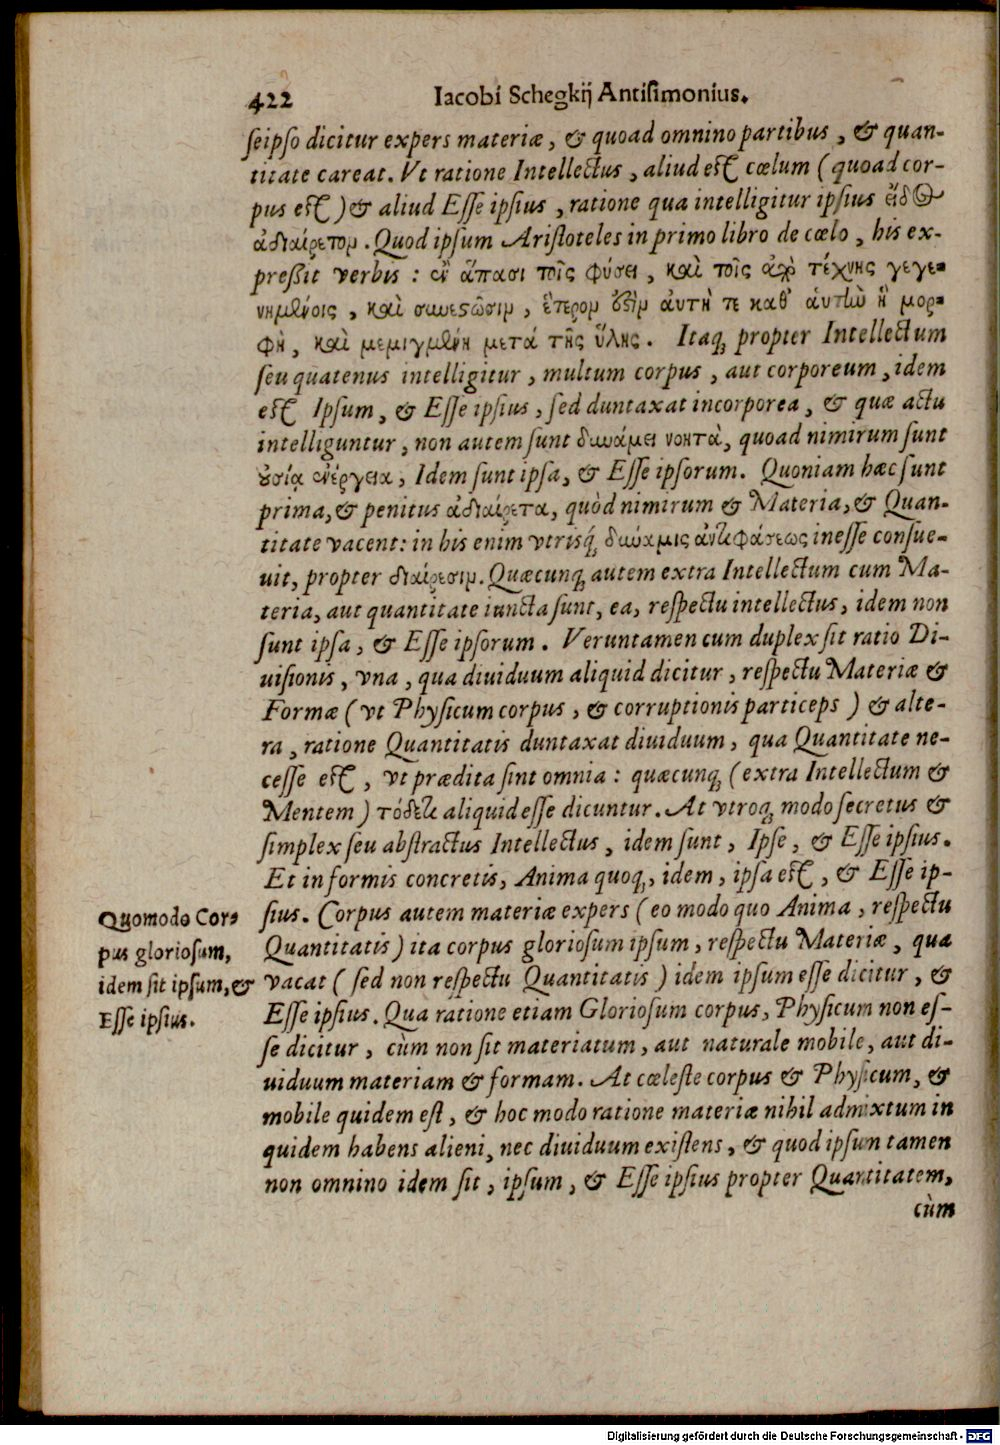 422 Iacobi Schegkij Antisimonius.
seipso dicitur expers materiæ, & quoad omnino partibus, & quan-
titate careat. Vt ratione Intellectus, aliud est cœlum (quoad cor-
pus est) & aliud Esse ipsius, ratione qua intelligitur ipsius εἶδος
ἀδιαίρετον. Quod ipsum Aristoteles in primo libro de cœlo, his ex-
preßit verbis: ἐν ἅπασι τοῖς φύσει, καὶ τοῖς ἀπὸ τέχνης γεγε-
νημένοις, καὶ συνεστῶσιν, ἕτερον ἐστὶν αὐτή τε καθ' αὑτὴν ἡ μορ-
φὴ, καὶ μεμιγμένη μετά τῆς ὕλης. Itaq; propter Intellectum
seu quatenus intelligitur, multum corpus, aut corporeum, idem
est Ipsum, & Esse ipsius, sed duntaxat incorporea, & quæ actu
intelliguntur, non autem sunt δυνάμει νοητὰ, quoad nimirum sunt
οὐσίᾳ ἐνέργεια, Idem sunt ipsa, & Esse ipsorum. Quoniam hæc sunt
prima, & penitus ἀδιαίρετα, quòd nimirum & Materia, & Quan-
titate vacent: in his enim vtrisq; δύναμις ἀντιφάσεως inesse consue-
uit, propter διαίρεσιν. Quæcunq; autem extra Intellectum cum Ma-
teria, aut quantitate iuncta sunt, ea, respectu intellectus, idem non
sunt ipsa, & Esse ipsorum. Veruntamen cum duplex sit ratio Di-
uisionis, vna, qua diuiduum aliquid dicitur, respectu Materiæ &
Formæ (vt Physicum corpus, & corruptionis particeps) & alte-
ra, ratione Quantitatis duntaxat diuiduum, qua Quantitate ne-
cesse est, vt prædita sint omnia: quæcunq; (extra Intellectum &
Mentem) τόδε τι aliquid esse dicuntur. At vtroq; modo secretus &
simplex seu abstractus Intellectus, idem sunt, Ipse, & Esse ipsius.
Et in formis concretis, Anima quoq;, idem, ipsa est, & Esse ip-
sius. Corpus autem materiæ expers (eo modo quo Anima, respectu
Quantitatis) ita corpus gloriosum ipsum, respectu Materiæ, qua
vacat (sed non respectu Quantitatis) idem ipsum esse dicitur, &
Esse ipsius. Qua ratione etiam Gloriosum corpus, Physicum non es-
se dicitur, cùm non sit materiatum, aut naturale mobile, aut di-
uiduum materiam & formam. At cœleste corpus & Physicum, &
mobile quidem est, & hoc modo ratione materiæ nihil admixtum in
quidem habens alieni, nec diuiduum existens, & quod ipsum tamen
non omnino idem sit, ipsum, & Esse ipsius propter Quantitatem,
cùm
Quomodo Cor-
pus gloriosum,
idem sit ipsum, &
Esse ipsius.
Digitalisierung gefördert durch die Deutsche Forschungsgemeinschaft - DFG